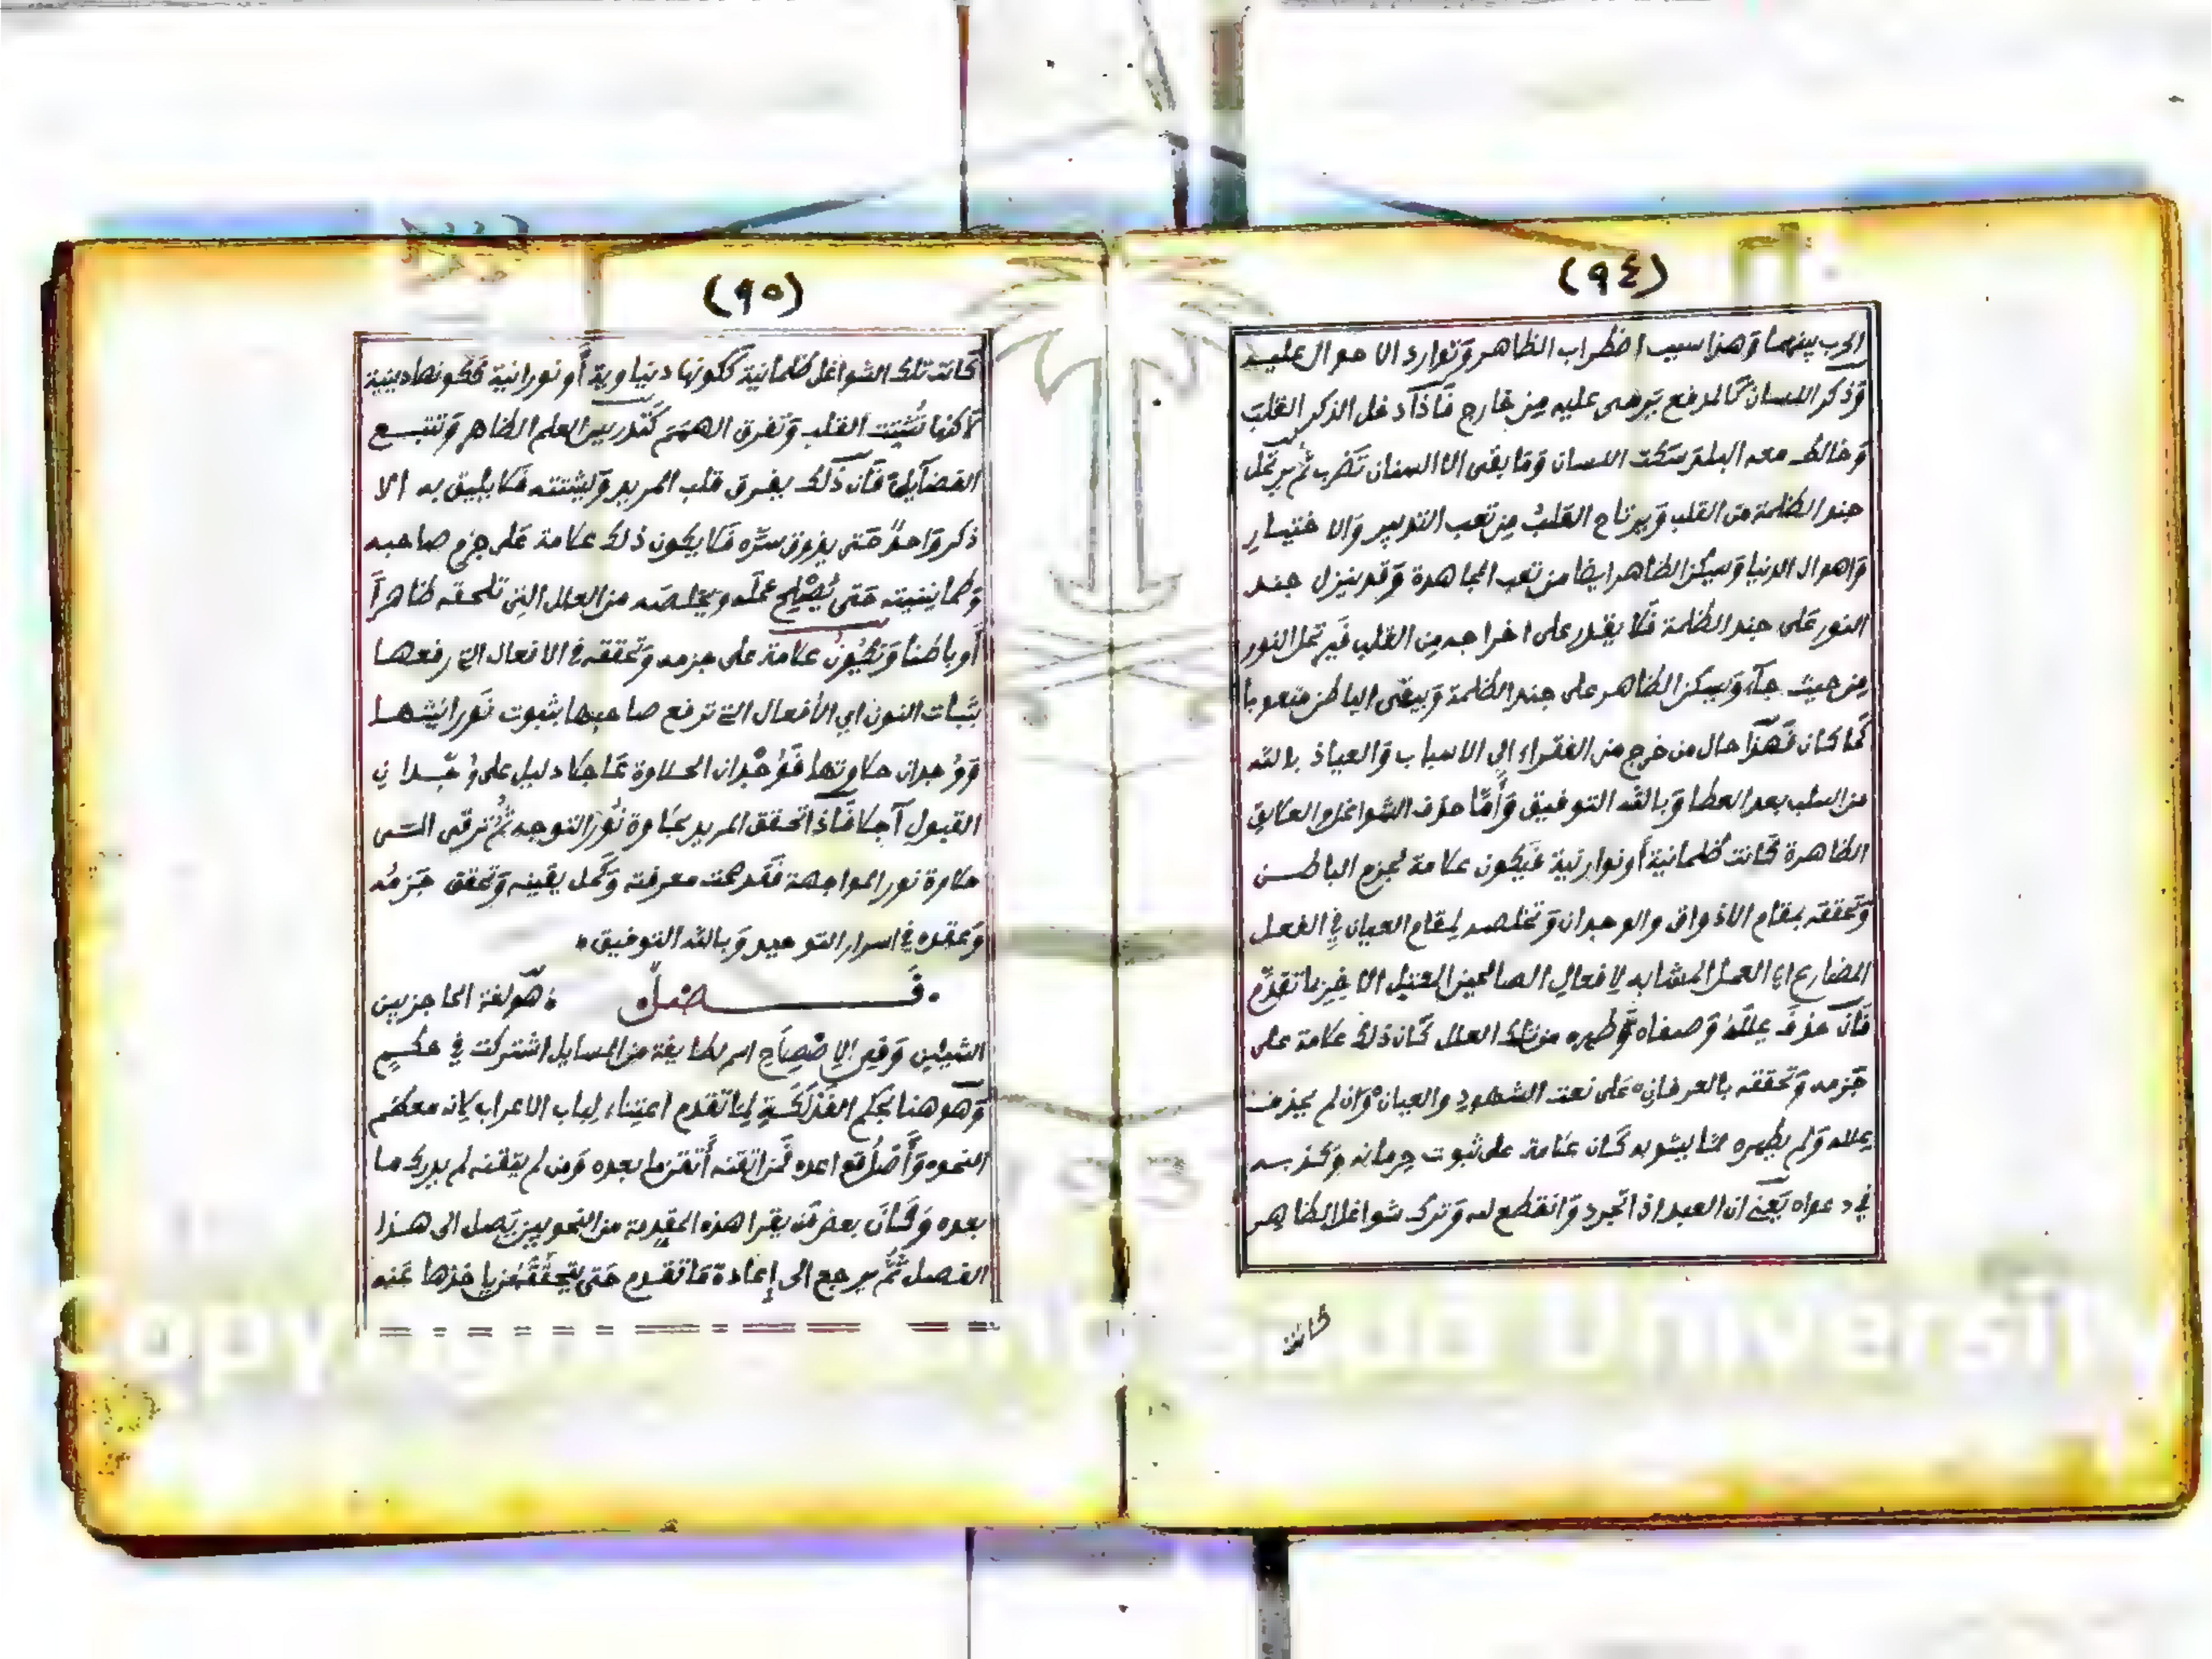 (٩٤)
الحرب بينهما وَهذا سبب اضطراب الظاهر وَتوارد الاحوال عليه
وَذكر اللسان كالمدفع يَرمى عليه مِن خارج فَاذا دخل الذكر القلبَ
وَخالط معه البلد سَكت اللسان وَما بقى الا السنان تَضرب ثُم يرتحل
جند الظلمة من القلب وَيرتاح القَلبُ مِن تعب التدبير وَالاختيارِ
وَاهوال الدنيا وَيسكن الظاهر ايضا من تعب المجاهدة وَقد ينزل جند
النور عَلى جند الظلمة فَلا يقدر على اخراجه مِن القلب فَيرتحل النور
مِن حيث جآء وَيسكن الظاهر على جند الظلمة وَيبقى الباطن متعوبا
كَما كان فَهذا حال من خرج من الفقراء الى الاسباب وَالعياذ بالله
من السلب بعد العطا وَبالله التوفيق وَأَمّا حذف الشواغل والعلايق
الظاهرة كَانت ظلمانية أَو نوارنية فَيَكون علامة لجزم الباطن
وَتحققه بمقام الاذواق والوجدان وَتخلصه لِمقام العيان فِي الفعل
المضارع اي العمل المشابه لافعال الصالحين المعتل الاخِر بما تقدّم
فَان حذفَ عِلَلَهُ وَصفاه وَطهره من تلك العلل كَان ذلك علامة على
جَزمه وَتحققه بالعرفان عَلى نعت الشهود والعيان وَان لم يحذف
عِلله وَلم يطهره مما يشوبه كَان علامة على ثبوت حِرمانه وَكذبه
في دعواه يَعني ان العبد اذا تجرد وَانقطع لله وَترك شواغل الظاهر
كانت
(٩٥)
كَانت تلك الشواغل ظلمانية كَكونها دنياوية أَو نورانية كَكونها دينية
لَاكنها تُشتِت القلب وَتفرق الهمَم كَتدريس العلم الظاهر وَتتبع
الفضآيل فَان ذَلك يفرق قلب المريد وَيشتته فَلا يليق به الا
ذكر وَاحدٌ حَتى يذوق سرَّه فَلا يكون ذلك علامة عَلى جزم صاحبه
وَطمانينيته حَتى يُصْلِح عملَه ويخلصَه من العلل التى تلحقه ظاهراً
أَو باطنا وَتكُونُ علامة على جزمه وَتحققه في الافعال التي رفعها
بثبات النون اي الأفعال التي ترفع صاحبها بثبوت نَورانيتها
وَوُجدان حلاوتها فَوُجْدان الحلاوة عَاجلا دليل على وُجدانِ
القبول آجلا فَاذا تحقق المريد بحَلاوة نُور التوجه ثُم ترقى الى
حلاوة نور المواجهة فَقد تمت معرفته وَكَمل يقينه وَتحقق جَزمُه
وَعقده في اسرار التوحيد وَبالله التوفيق
فَــصل هَو لغة الحاجز بين
الشيئين وَفي الاصْطِلَاحِ اسم لطايفة من المسايل اشتركت في حكم
وَهو هنا بحكم الفَذْلَكَةِ لِما تقدم اعتِناء لِباب الاعراب لانه معظم
النحو وَأَصْلُ قواعده فَمن اتقنه أَتقن ما بعده وَمن لم يتقنه لم يدرك ما
بعده وَكَانَ بعض مَن يقرا هذه المقدمة من النحويين يَصل الى هذا
الفصل ثُمّ يرجع الى إعادة مَا تقدم حَتى يتحقَّقَ مَن ياخذها عَنه